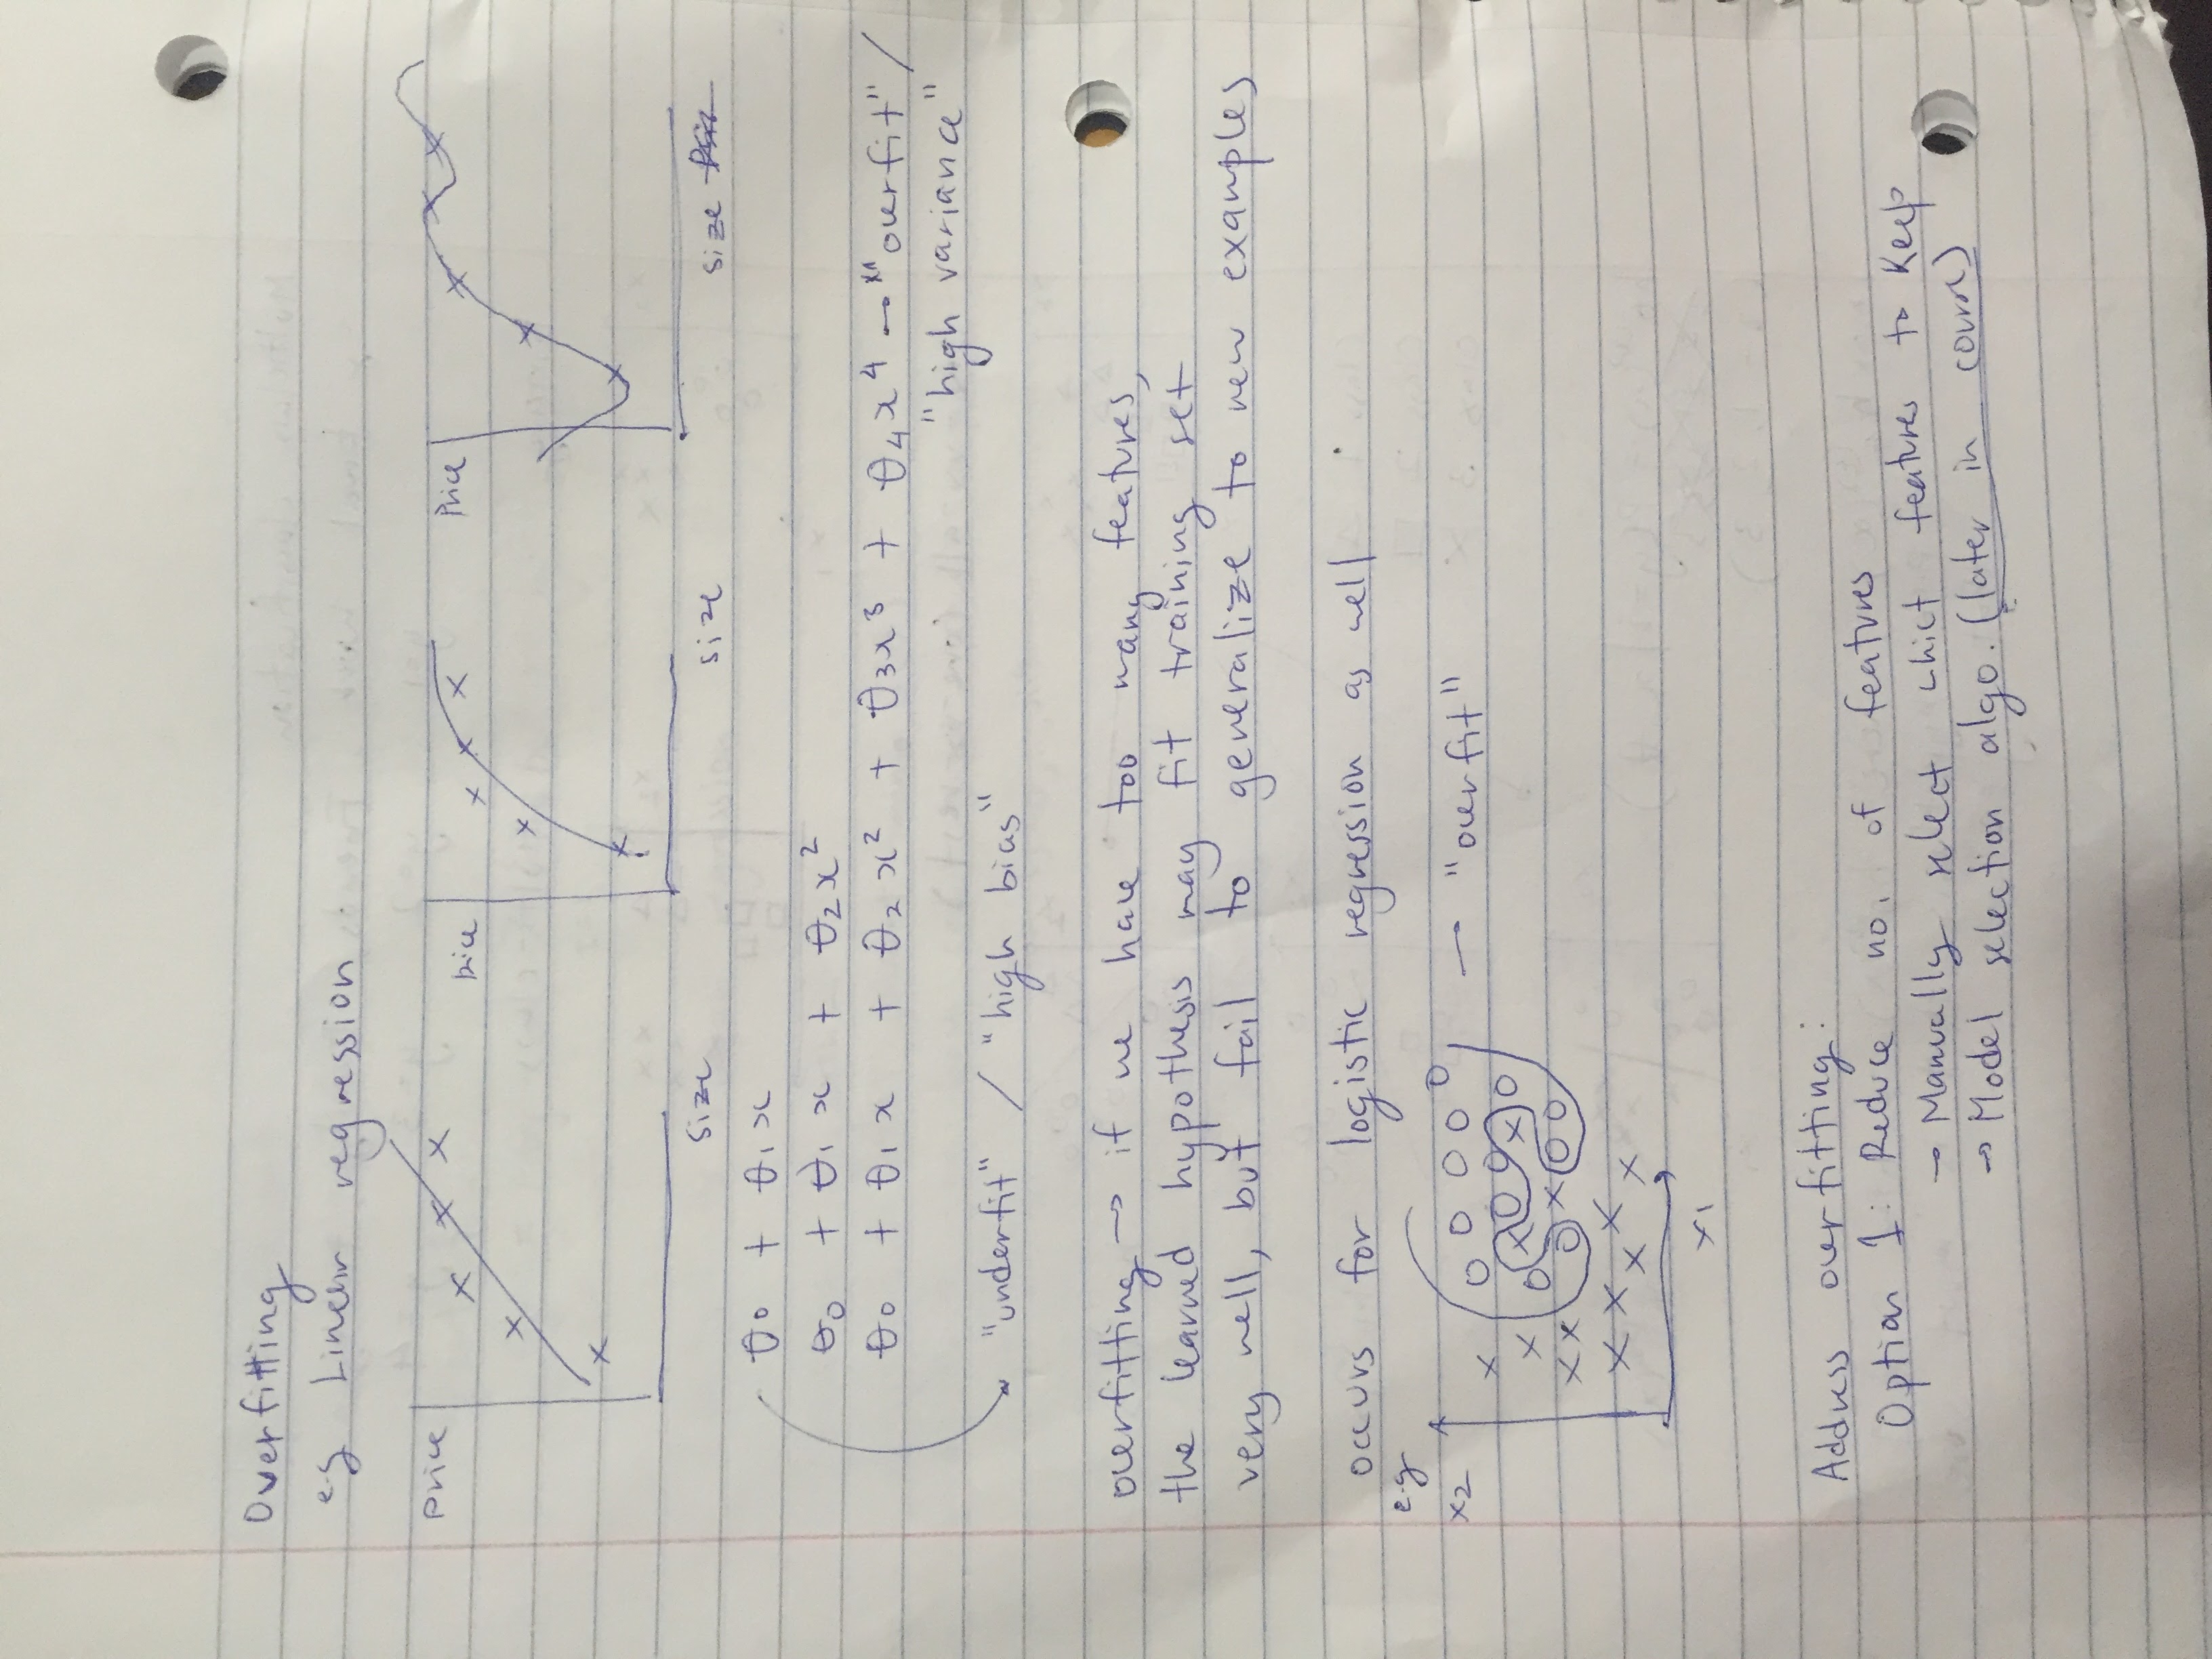 Overfitting
e.g Linear regression
Price
Price
Price
size
size
size
θ0 + θ1x
θ0 + θ1x + θ2x²
θ0 + θ1x + θ2x² + θ3x³ + θ4x⁴ → "overfit" /
"high variance"
"underfit" / "high bias"
overfitting → if we have too many features,
the learned hypothesis may fit training set
very well, but fail to generalize to new examples
occurs for logistic regression as well
e.g
x2
→ "overfit"
x1
Address overfitting:
Option 1: Reduce no. of features
→ Manually select whict features to keep
→ Model selection algo. (later in course)